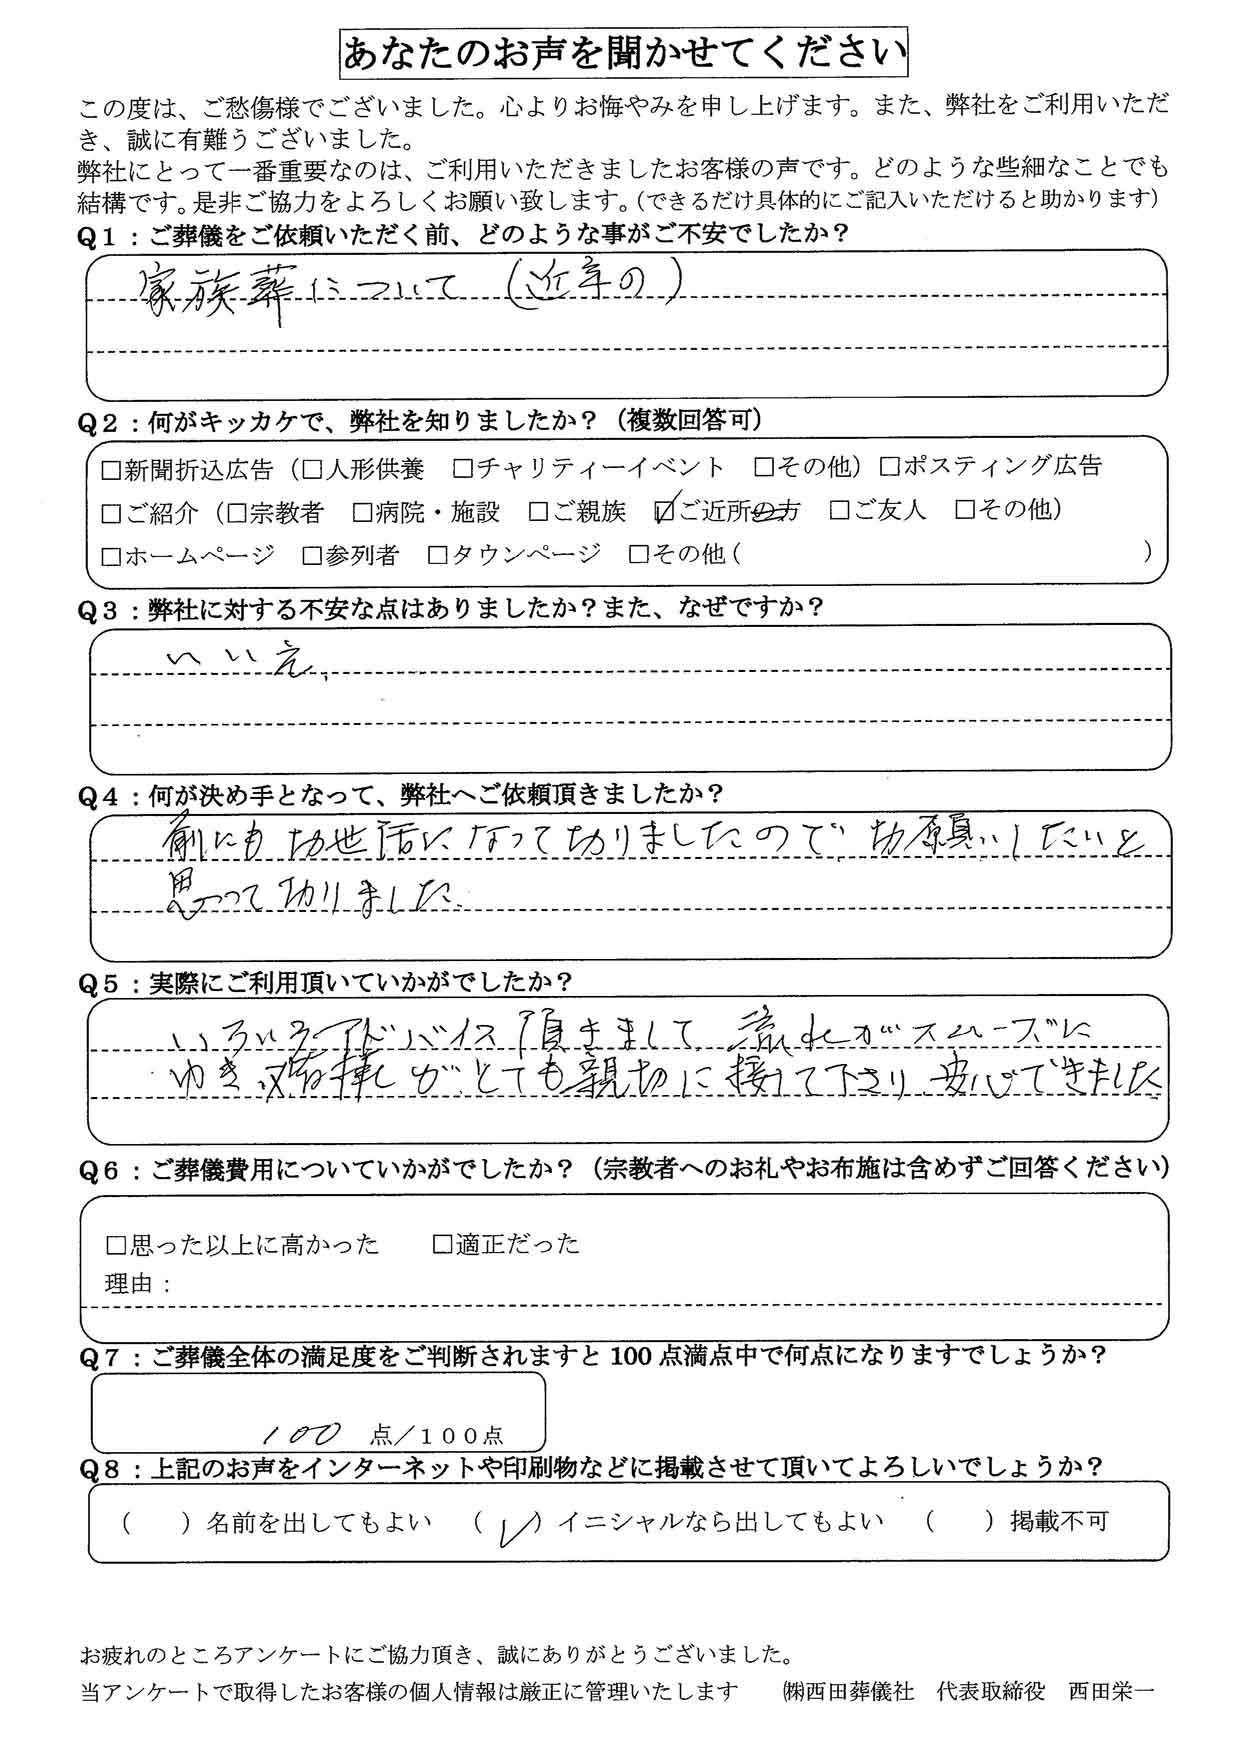 あなたのお声を聞かせてください
この度は、ご愁傷様でございました。心よりお悔やみを申し上げます。また、弊社をご利用いただ
き、誠に有難うございました。
弊社にとって一番重要なのは、ご利用いただきましたお客様の声です。どのような些細なことでも
結構です。是非ご協力をよろしくお願い致します。(できるだけ具体的にご記入いただけると助かります)
Q1：ご葬儀をご依頼いただく前、どのような事がご不安でしたか？
家族葬について (近年の)
Q2：何がキッカケで、弊社を知りましたか？（複数回答可）
□新聞折込広告（□人形供養 □チャリティーイベント □その他）□ポスティング広告
□ご紹介（□宗教者 □病院・施設 □ご親族 ☑ご近所の方 □ご友人 □その他）
□ホームページ □参列者 □タウンページ □その他（ ）
Q3：弊社に対する不安な点はありましたか？また、なぜですか？
いいえ、
Q4：何が決め手となって、弊社へご依頼頂きましたか？
前にもお世話になっておりましたので、お願いしたいと
思っておりました。
Q5：実際にご利用頂いていかがでしたか？
いろいろアドバイス頂きまして、流れがスムーズに
ゆき、皆様がとても親切に接して下さり、安心できました。
Q6：ご葬儀費用についていかがでしたか？（宗教者へのお礼やお布施は含めずご回答ください）
□思った以上に高かった □適正だった
理由：
Q7：ご葬儀全体の満足度をご判断されますと100点満点中で何点になりますでしょうか？
100 点／１００点
Q8：上記のお声をインターネットや印刷物などに掲載させて頂いてよろしいでしょうか？
（ ）名前を出してもよい （✓）イニシャルなら出してもよい （ ）掲載不可
お疲れのところアンケートにご協力頂き、誠にありがとうございました。
当アンケートで取得したお客様の個人情報は厳正に管理いたします ㈱西田葬儀社 代表取締役 西田栄一